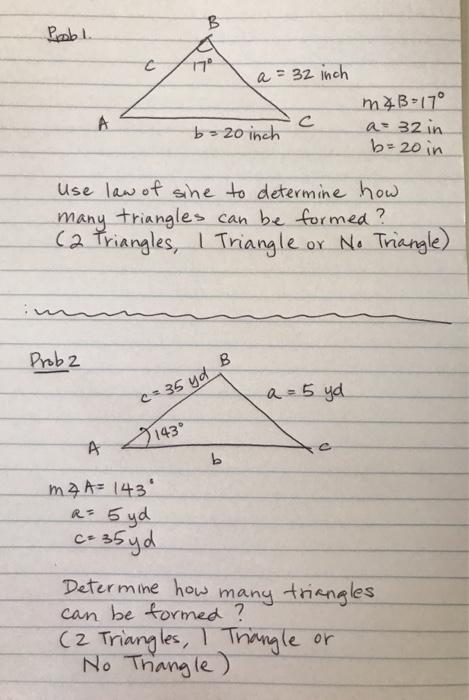 Prob 1.
B
c
17°
a = 32 inch
A
b = 20 inch
C
m∡B=17°
a= 32 in
b= 20 in
Use law of sine to determine how
many triangles can be formed?
(2 Triangles, 1 Triangle or No Triangle)
Prob 2
B
c = 35 yd
a = 5 yd
143°
A
b
c
m∡A= 143°
a= 5 yd
c= 35 yd
Determine how many triangles
can be formed?
(2 Triangles, 1 Triangle or
No Triangle)